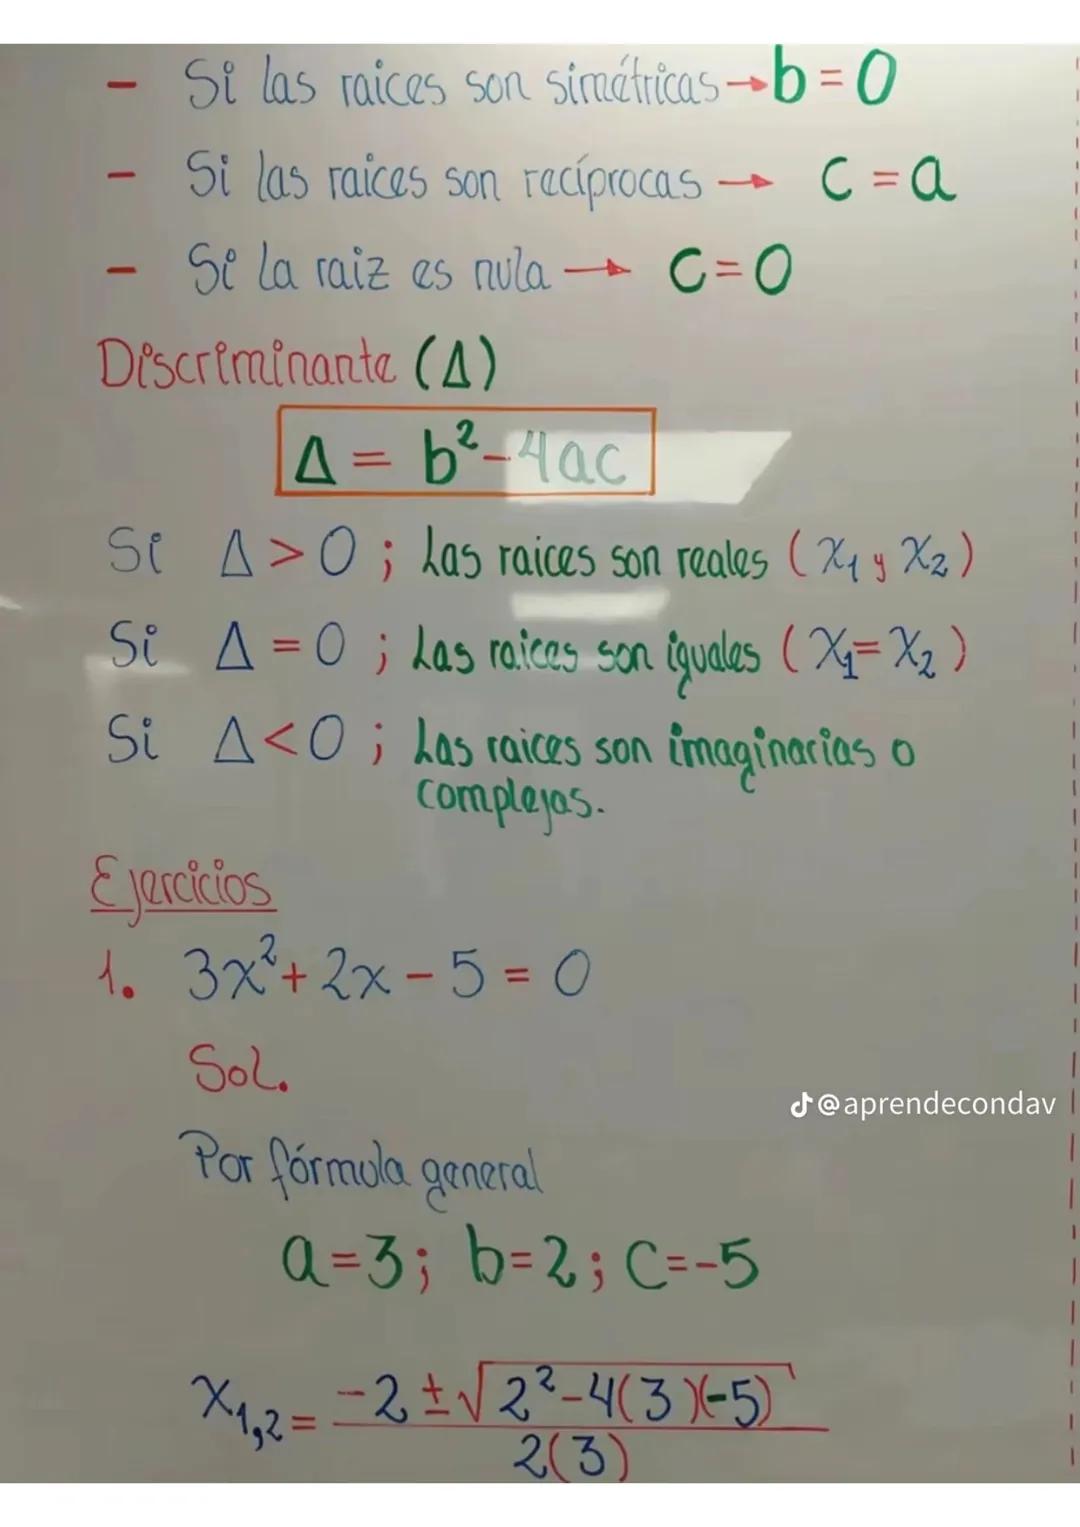 - Si las raices son simétricas → b = 0
- Si las raices son recíprocas → c = a
- Si la raiz es nula → c = 0
Discriminante (Δ)
Δ = b² - 4ac
Si Δ > 0 ; Las raices son reales ( x₁ y x₂ )
Si Δ = 0 ; Las raices son iguales ( x₁ = x₂ )
Si Δ < 0 ; Las raices son imaginarias o
complejas.
Ejercicios
1. 3x² + 2x - 5 = 0
Sol.
@aprendecondav
Por fórmula general
a = 3 ; b = 2 ; c = -5
x₁,₂ = -2 ± √2² - 4(3)(-5)
2(3)